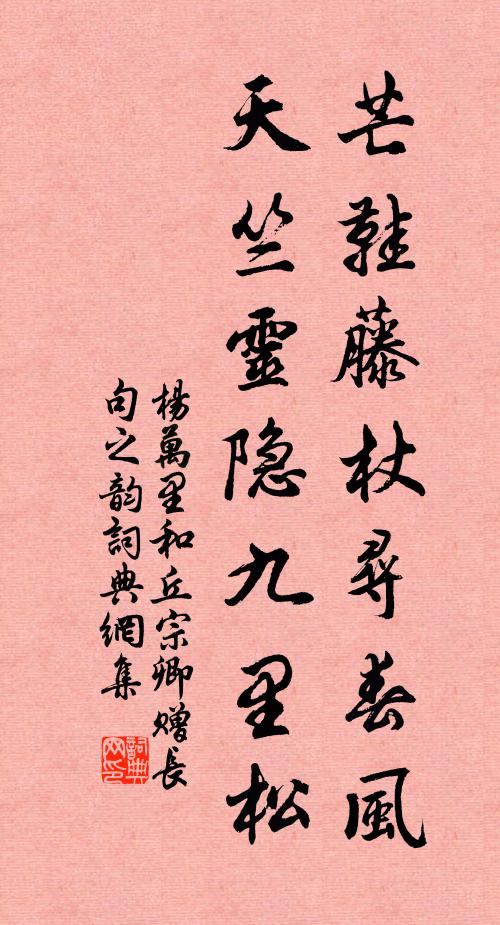 芒鞋藤杖尋春風
天竺靈隐九里松
楊萬里和丘宗卿赠長
句之韵詞典網集
詞典
网印